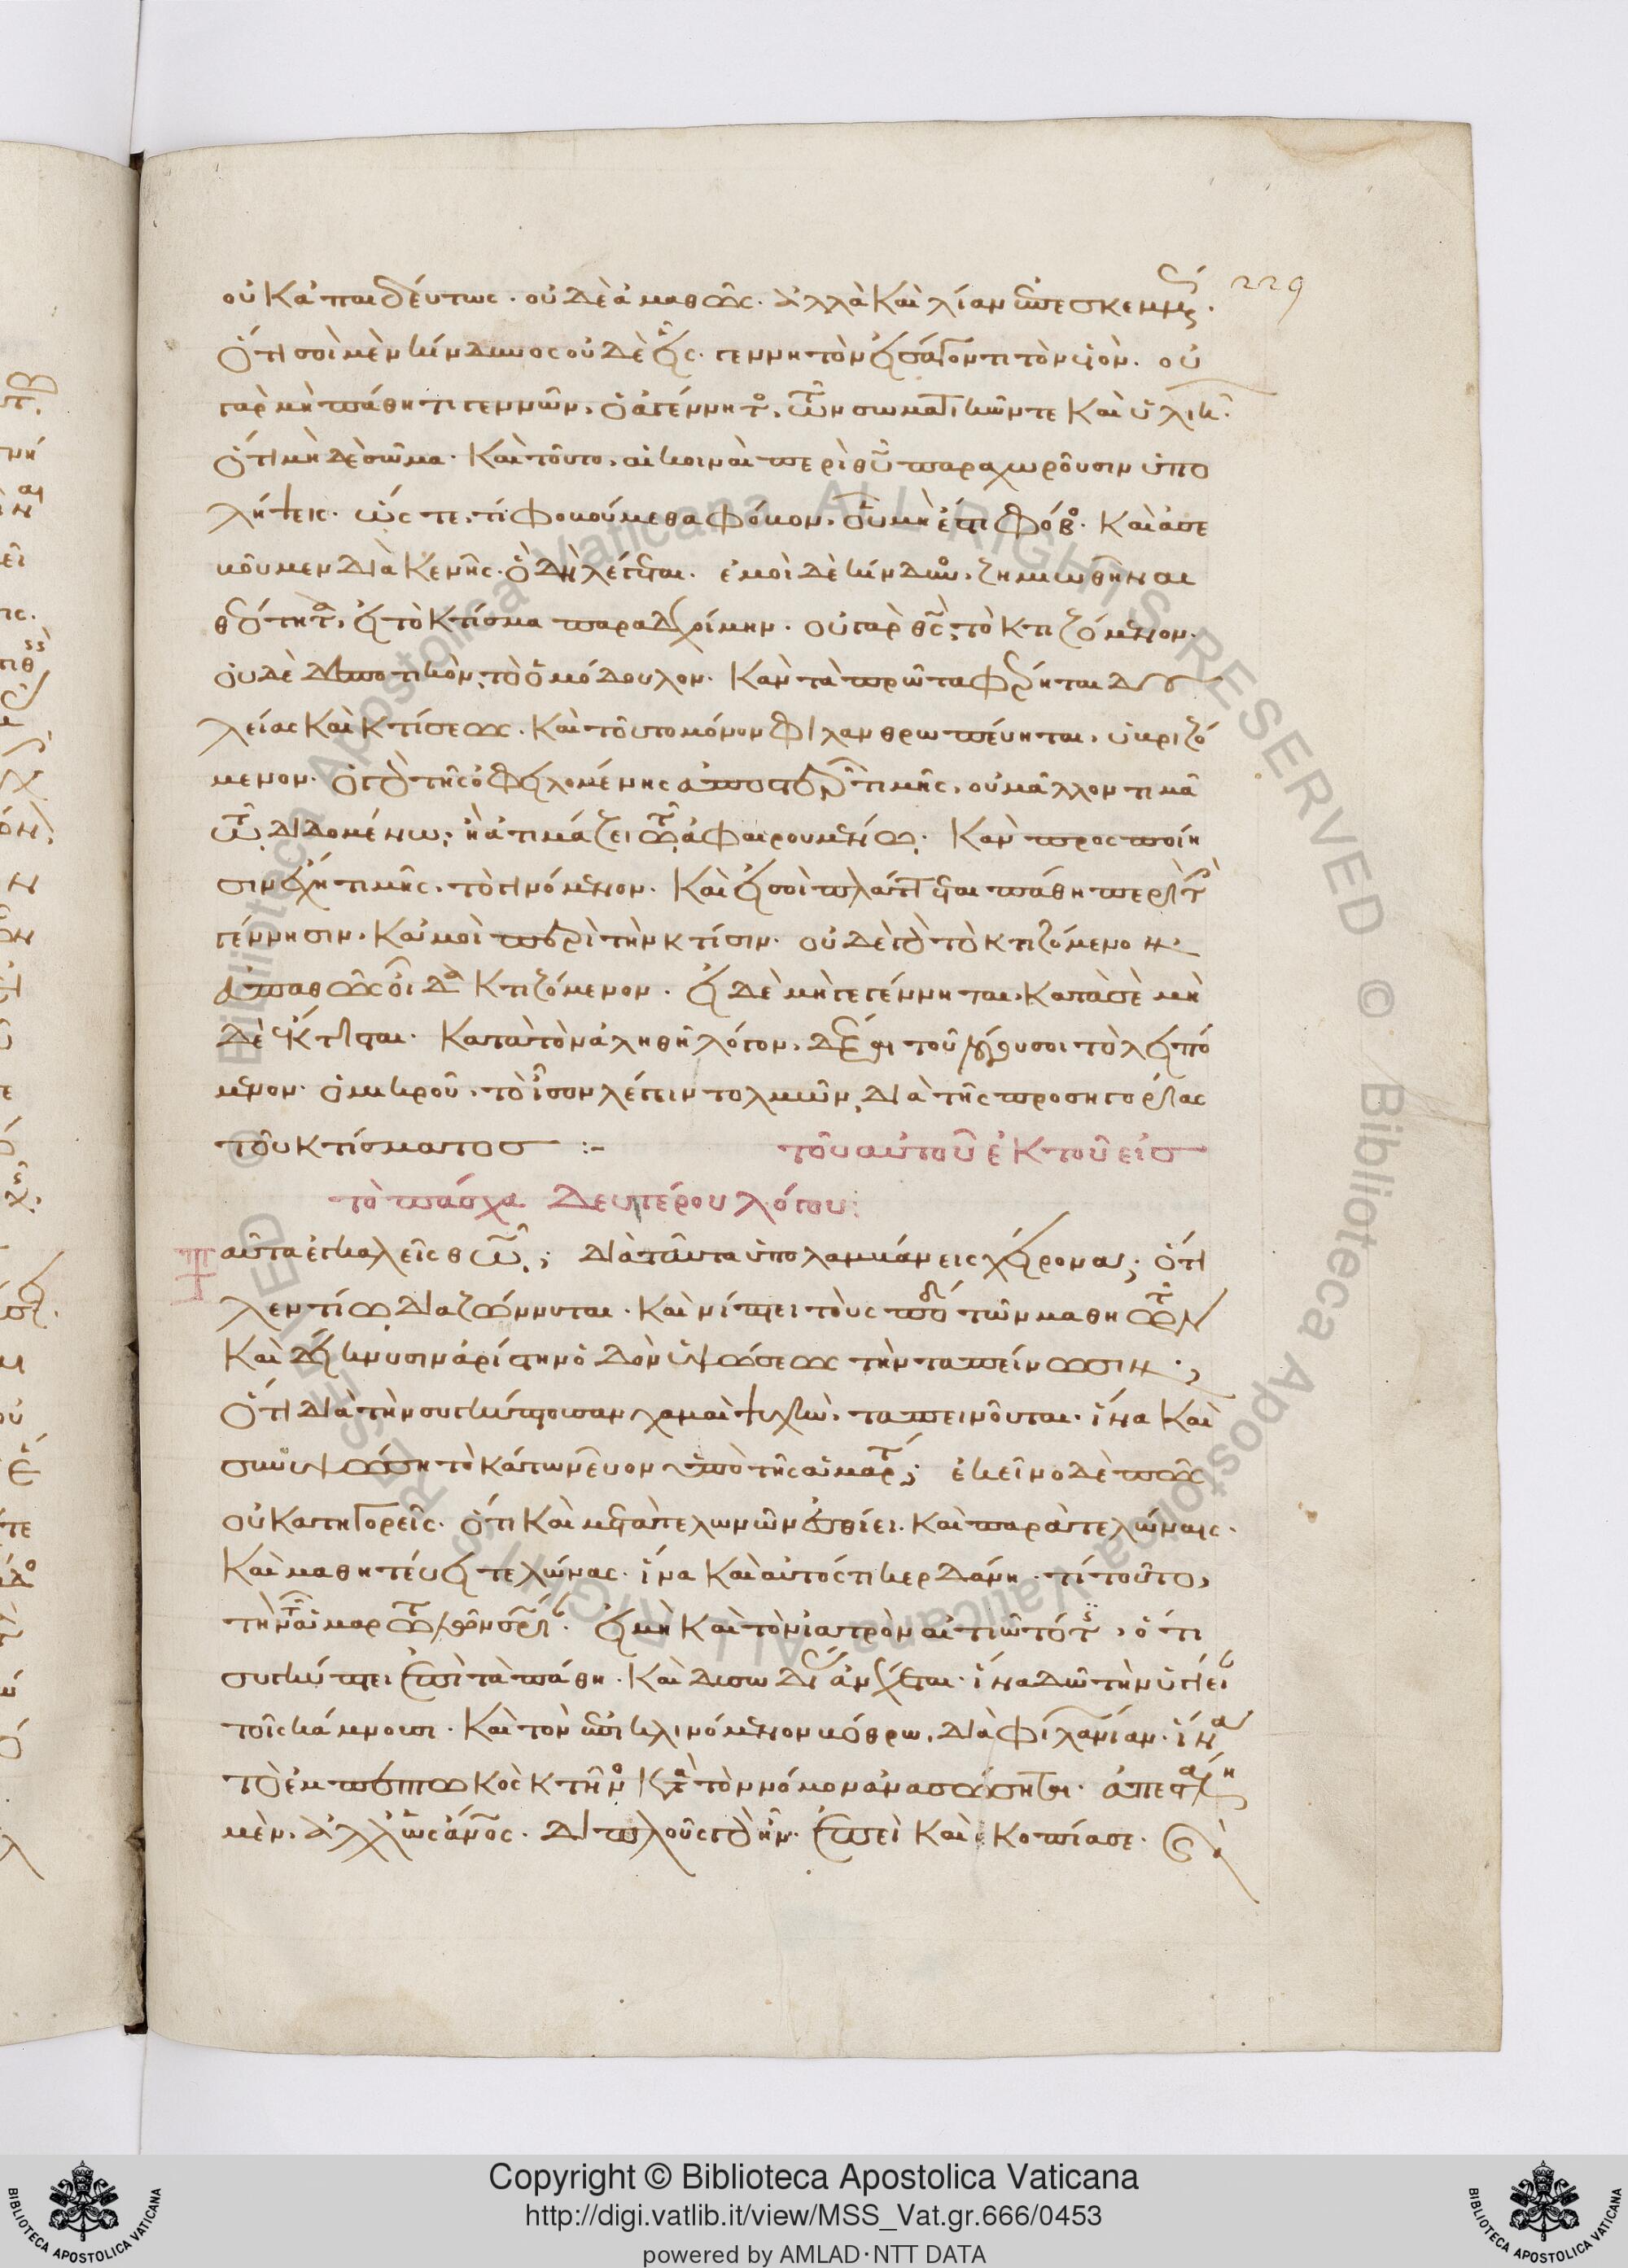 οὐκ ἀπαιδεύτως. οὐδὲ ἀμαθῶς. ἀλλὰ καὶ λίαν ἐπεσκεμμένως. 229
ὅτι σοὶ μὲν κίνδυνος οὐδὲ εἷς. γεννητὸν εἰσάγοντι τὸν υἱὸν. οὐ
γὰρ μὴ πάθη τι γεννῶν, ὁ ἀγέννητος, τῶν σωματικῶν τε καὶ ὑλικῶν.
ὅτι μὴ δὲ σῶμα. καὶ τοῦτο, αἱ κοιναὶ περὶ θυ παραχωροῦσιν ὑπο
λήψεις. ὥς τε, τί φοβούμεθα φόβον, οὗ μὴ ἔστι φόβος. καὶ ἀσε
βοῦμεν διὰ κενῆς. ὃ δὴ λέγεται. ἐμοὶ δὲ κίνδυνος, ζημιωθῆναι
θεότητα, εἰ τὸ κτίσμα παραδεχοίμην. οὐ γὰρ θς, τὸ κτιζόμενον.
οὐδὲ δεσποτικὸν, τὸ ὁμόδουλον. κἂν τὰ πρῶτα φέρηται δου
λείας καὶ κτίσεως. καὶ τοῦτο μόνον φιλανθρωπεύηται, ὑβριζό
μενον. ὁ γὰρ τῆς ὀφειλομένης ἀποστερῶν τιμῆς, οὐ μᾶλλον τιμᾶ
τῶ διδομένω, ἢ ἀτιμάζει τῶ ἀφαιρουμένω. κἂν προσποίη
σιν ἔχη τιμῆς, τὸ γινόμενον. καὶ εἰ σοὶ πλάττεται πάθη περὶ τὴν
γέννησιν, κἀμοὶ περὶ τὴν κτίσιν. οὐδὲ γὰρ τὸ κτιζόμενον
ἀπαθῶς οἶδα κτιζόμενον. εἰ δὲ μὴ γεγέννηται, κατὰ σὲ μὴ
δὲ ἔκτισται. κατὰ τὸν ἀληθῆ λόγον, δέχεται τοῦ ψεύδους τὸ λειπό
μενον. ὁ μικροῦ, τὸ ἴσον λέγειν τολμῶν, διὰ τῆς προσηγορίας
τοῦ κτίσματος :-       τοῦ αὐτοῦ ἐκ τοῦ εἰς
τὸ πάσχα δευτέρου λόγου:
Ταῦτα ἐγκαλεῖς θῶ; διὰ ταῦτα ὑπολαμβάνεις χείρονα; ὅτι
λεντίω διαζώννυται. καὶ νίπτει τοὺς πόδας τῶν μαθητῶν
καὶ δείκνυσιν ἀρίστην ὁδὸν ὑψώσεως τὴν ταπείνωσιν;
ὅτι διὰ τὴν συγκύπτουσαν χαμαὶ ψυχὴν, ταπεινοῦται. ἵνα καὶ
συνυψώση τὸ κάτω νεῦον ὑπὸ τῆς ἁμαρτίας; ἐκεῖνο δὲ πῶς
οὐ κατηγορεῖς. ὅτι καὶ μετὰ τελωνῶν ἐσθίει. καὶ παρὰ τελώναις.
καὶ μαθητεύει τελώνας. ἵνα καὶ αὐτός τι κερδάνη. τί τοῦτο,
τὴν τῶν ἁμαρτωλῶν σωτηρίαν. εἰ μὴ καὶ τὸν ἰατρὸν αἰτιῶτό τις, ὅτι
συγκύπτει ἐπὶ τὰ πάθη. καὶ δυσωδίας ἀνέχεται. ἵνα δῶ τὴν ὑγίειαν
τοῖς κάμνουσι. καὶ τὸν ἐπικλινόμενον βόθρω, διὰ φιλανίαν. ἵνα
τὸ ἐμπεπτωκὸς κτῆνος κατὰ τὸν νόμον ἀνασώσηται. ἀπεστάλη
μὲν, ἀλλ' ὡς ἄνος. διπλοῦς γὰρ ἦν. ἐπεὶ καὶ ἐκοπίασε.